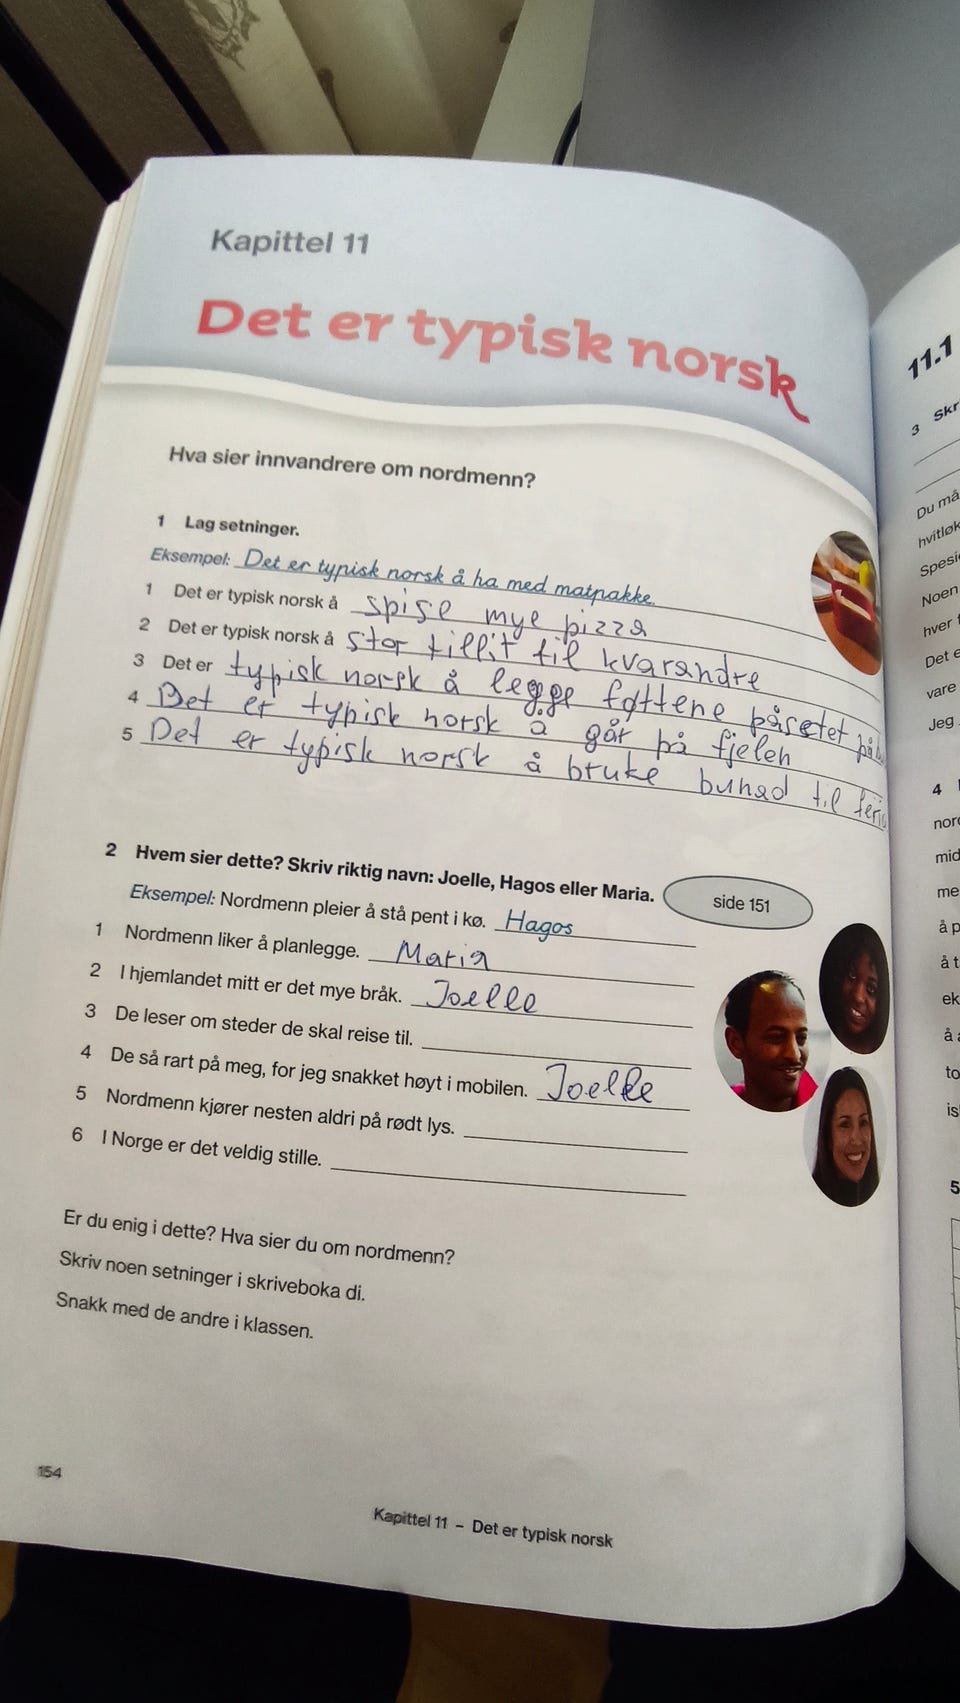 Kapittel 11
Det er typisk norsk
Hva sier innvandrere om nordmenn?
1 Lag setninger.
Eksempel: Det er typisk norsk å ha med matpakke.
1 Det er typisk norsk å spise mye pizza
2 Det er typisk norsk å stor tillit til kvarandre
3 Det er typisk norsk å legge føttene påsetet på
4 Det er typisk norsk å går på fjelen
5 Det er typisk norsk å bruke bunad til
2 Hvem sier dette? Skriv riktig navn: Joelle, Hagos eller Maria.
side 151
Eksempel: Nordmenn pleier å stå pent i kø. Hagos
1 Nordmenn liker å planlegge. Maria
2 I hjemlandet mitt er det mye bråk. Joelle
3 De leser om steder de skal reise til.
4 De så rart på meg, for jeg snakket høyt i mobilen. Joelle
5 Nordmenn kjører nesten aldri på rødt lys.
6 I Norge er det veldig stille.
Er du enig i dette? Hva sier du om nordmenn?
Skriv noen setninger i skriveboka di.
Snakk med de andre i klassen.
154
Kapittel 11 – Det er typisk norsk
11.1
3 Skr
Du må
hvitløk
Spesi
Noen
hver
Det e
vare
Jeg
4
nor
mid
me
å p
å t
ek
å
to
is
5